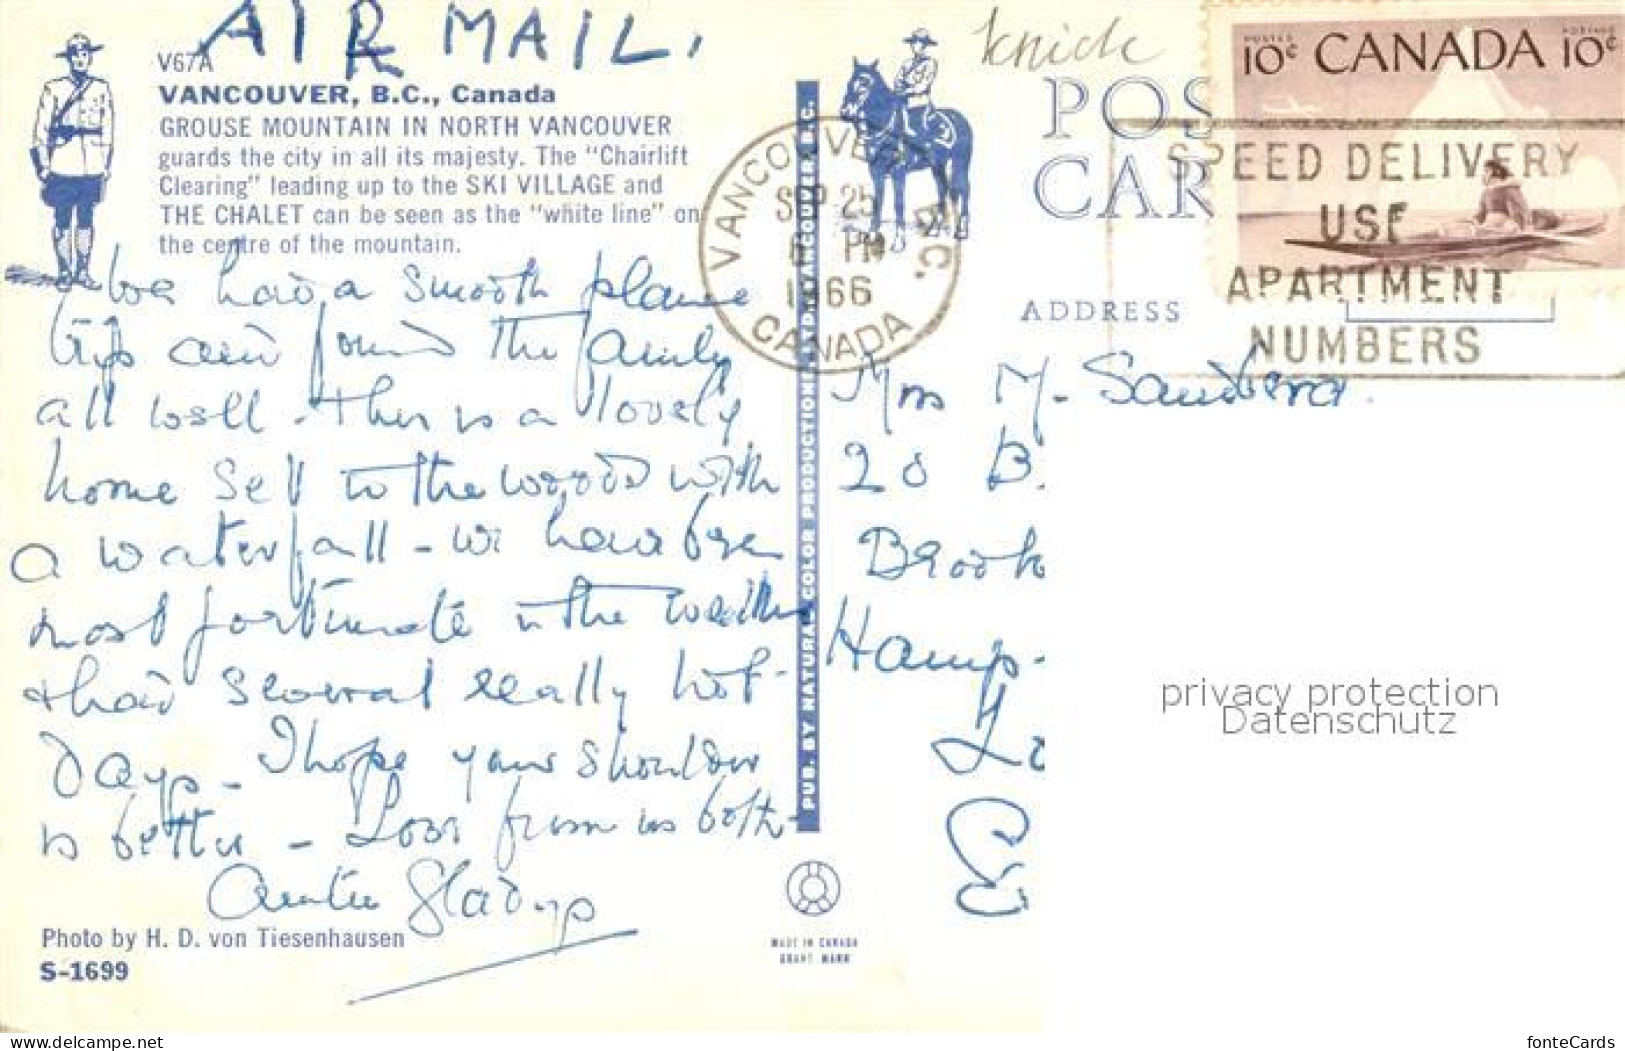 AIR MAIL,
V67A
VANCOUVER, B.C., Canada
GROUSE MOUNTAIN IN NORTH VANCOUVER
guards the city in all its majesty. The "Chairlift
Clearing" leading up to the SKI VILLAGE and
THE CHALET can be seen as the "white line" on
the centre of the mountain.
We had a smooth plane
trip and found the family
all well - this is a lovely
home set to the woods with
a waterfall - we have been
most fortunate in the weather
& had several really hot -
days - I hope your shoulder
is better - Love from us both -
Auntie Gladys
Photo by H. D. von Tiesenhausen
S-1699
PUB. BY NATURAL COLOR PRODUCTIONS VANCOUVER B.C.
MADE IN CANADA
VANCOUVER B.C.
SEP 25
PM
1966
CANADA
Knick
POS
CAR
ADDRESS
POSTES POSTAGE
10¢ CANADA 10¢
SPEED DELIVERY
USE
APARTMENT
NUMBERS
Mrs M. Sanders.
20 B.
Brook
Hamp-
Lo
E
privacy protection
Datenschutz
www.delcampe.net
fonteCards